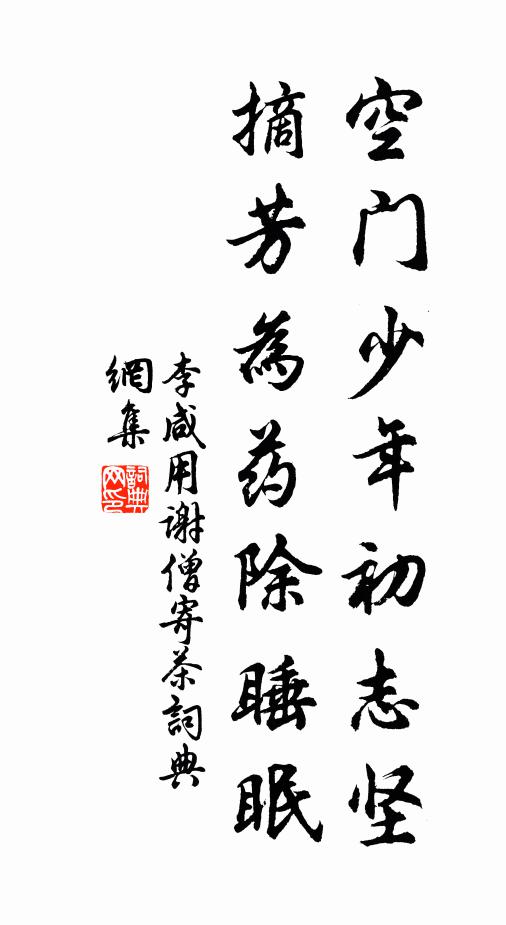 空门少年初志坚
摘芳為药除睡眠
李咸用谢僧寄茶詞典
網集
詞典
网印